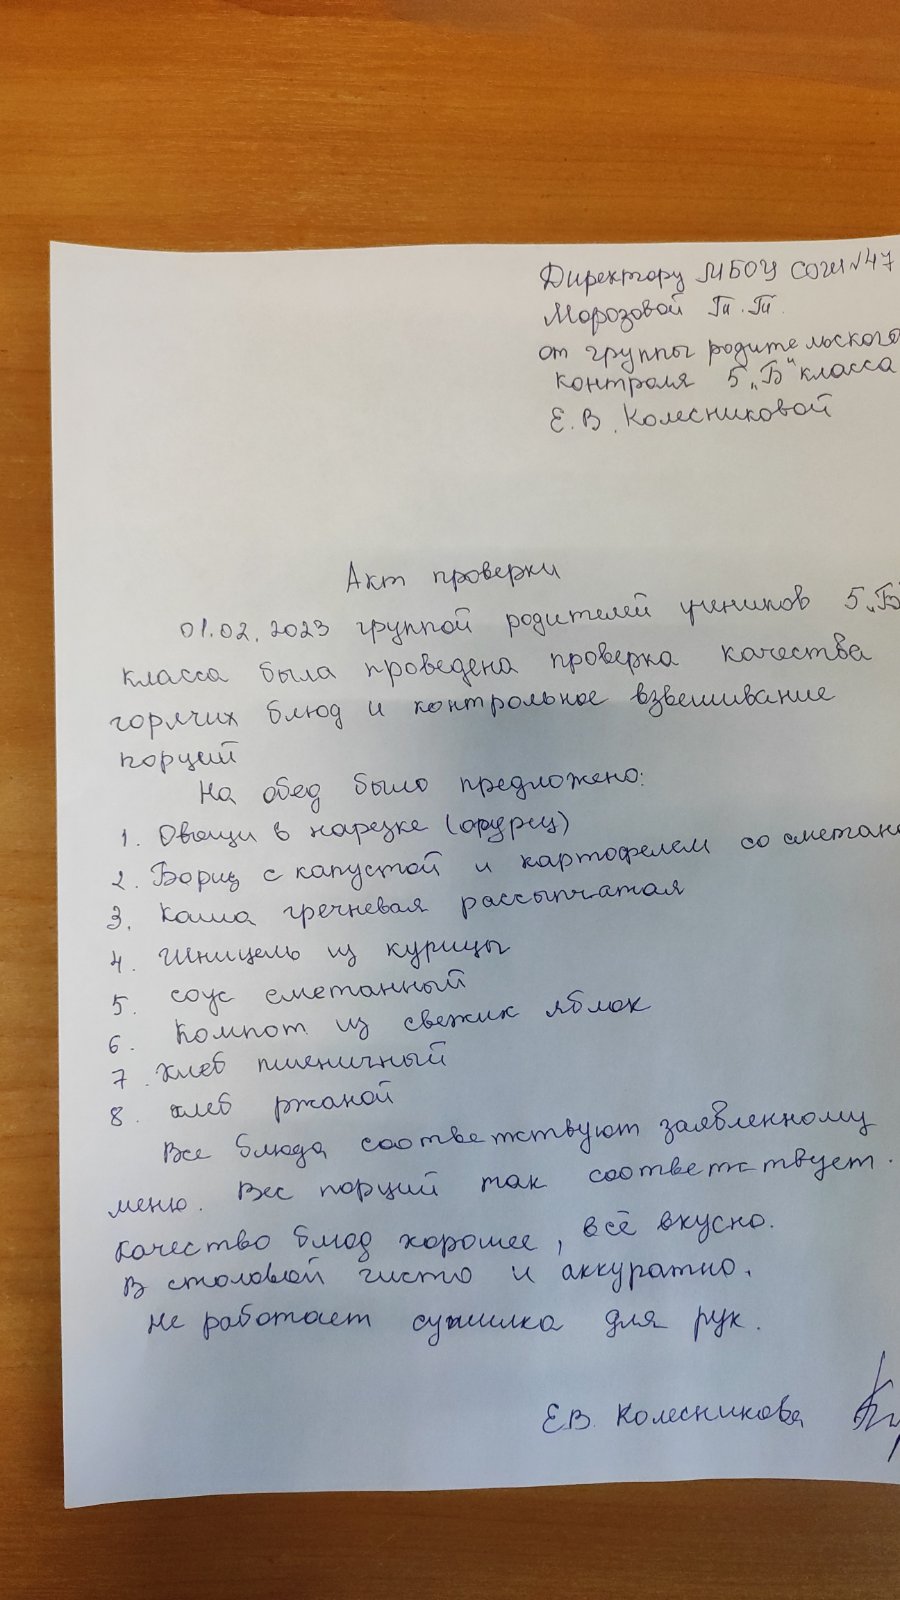 Директору МБОУ СОШ №47
Морозовой Т. Т.
от группы родительского
контроля 5 „Б" класса
Е. В. Колесниковой
Акт проверки
01.02.2023 группой родителей учеников 5 „Б"
класса была проведена проверка качества
горячих блюд и контрольное взвешивание
порций
На обед было предложено:
1. Овощи в нарезке (огурец)
2. Борщ с капустой и картофелем со сметано
3. Каша гречневая рассыпчатая
4. Шницель из курицы
5. соус сметанный
6. Компот из свежих яблок
7. Хлеб пшеничный
8. хлеб ржаной
Все блюда соответствуют заявленному
меню. Вес порций так соответствует.
Качество блюд хорошее, всё вкусно.
В столовой чисто и аккуратно.
Не работает сушилка для рук.
Е.В. Колесникова